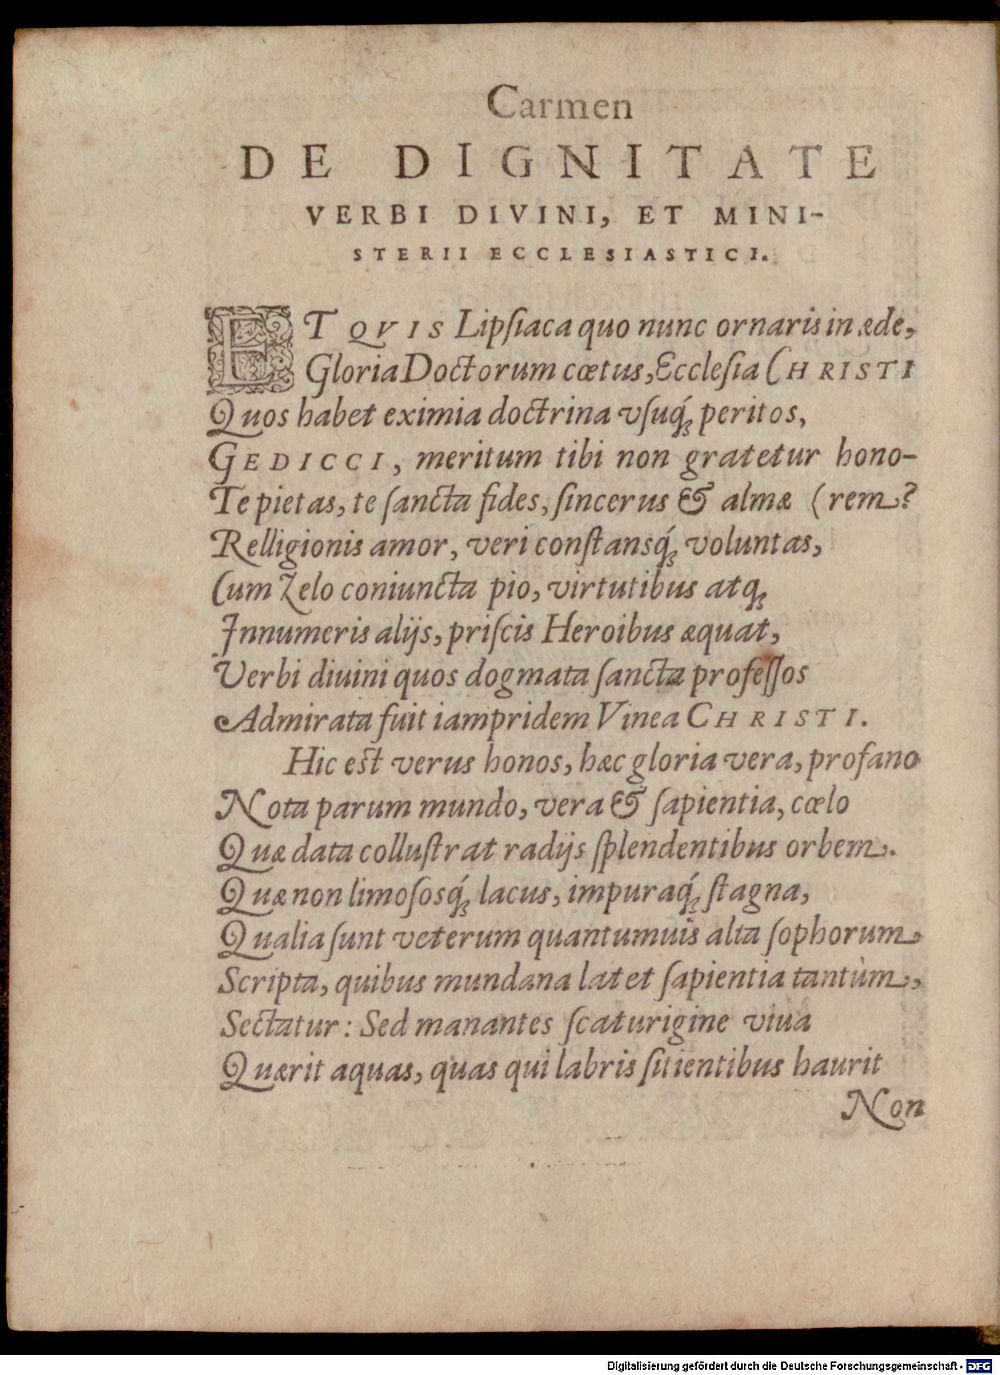 Carmen
DE DIGNITATE
VERBI DIVINI, ET MINI-
STERII ECCLESIASTICI.
ET QVIS Lipſiaca quo nunc ornaris in æde,
Gloria Doctorum cœtus, Eccleſia CHRISTI
Quos habet eximia doctrina vſuq́ꝫ peritos,
GEDICCI, meritum tibi non gratetur hono-
Te pietas, te ſancta fides, ſincerus & almæ (rem?
Relligionis amor, veri conſtansq́ꝫ voluntas,
Cum Zelo coniuncta pio, virtutibus atqꝫ
Innumeris alijs, priſcis Heroibus æquat,
Verbi diuini quos dogmata ſancta profeſſos
Admirata fuit iampridem Vinea CHRISTI.
Hic est verus honos, hæc gloria vera, profano
Nota parum mundo, vera & ſapientia, cœlo
Quæ data colluſtrat radijs ſplendentibus orbem.
Quæ non limoſosq́ꝫ lacus, impuraq́ꝫ ſtagna,
Qualia ſunt veterum quantumuis alta ſophorum
Scripta, quibus mundana latet ſapientia tantùm,
Sectatur: Sed manantes ſcaturigine viua
Quærit aquas, quas qui labris ſitientibus haurit
Non
Digitalisierung gefördert durch die Deutsche Forschungsgemeinschaft - DFG